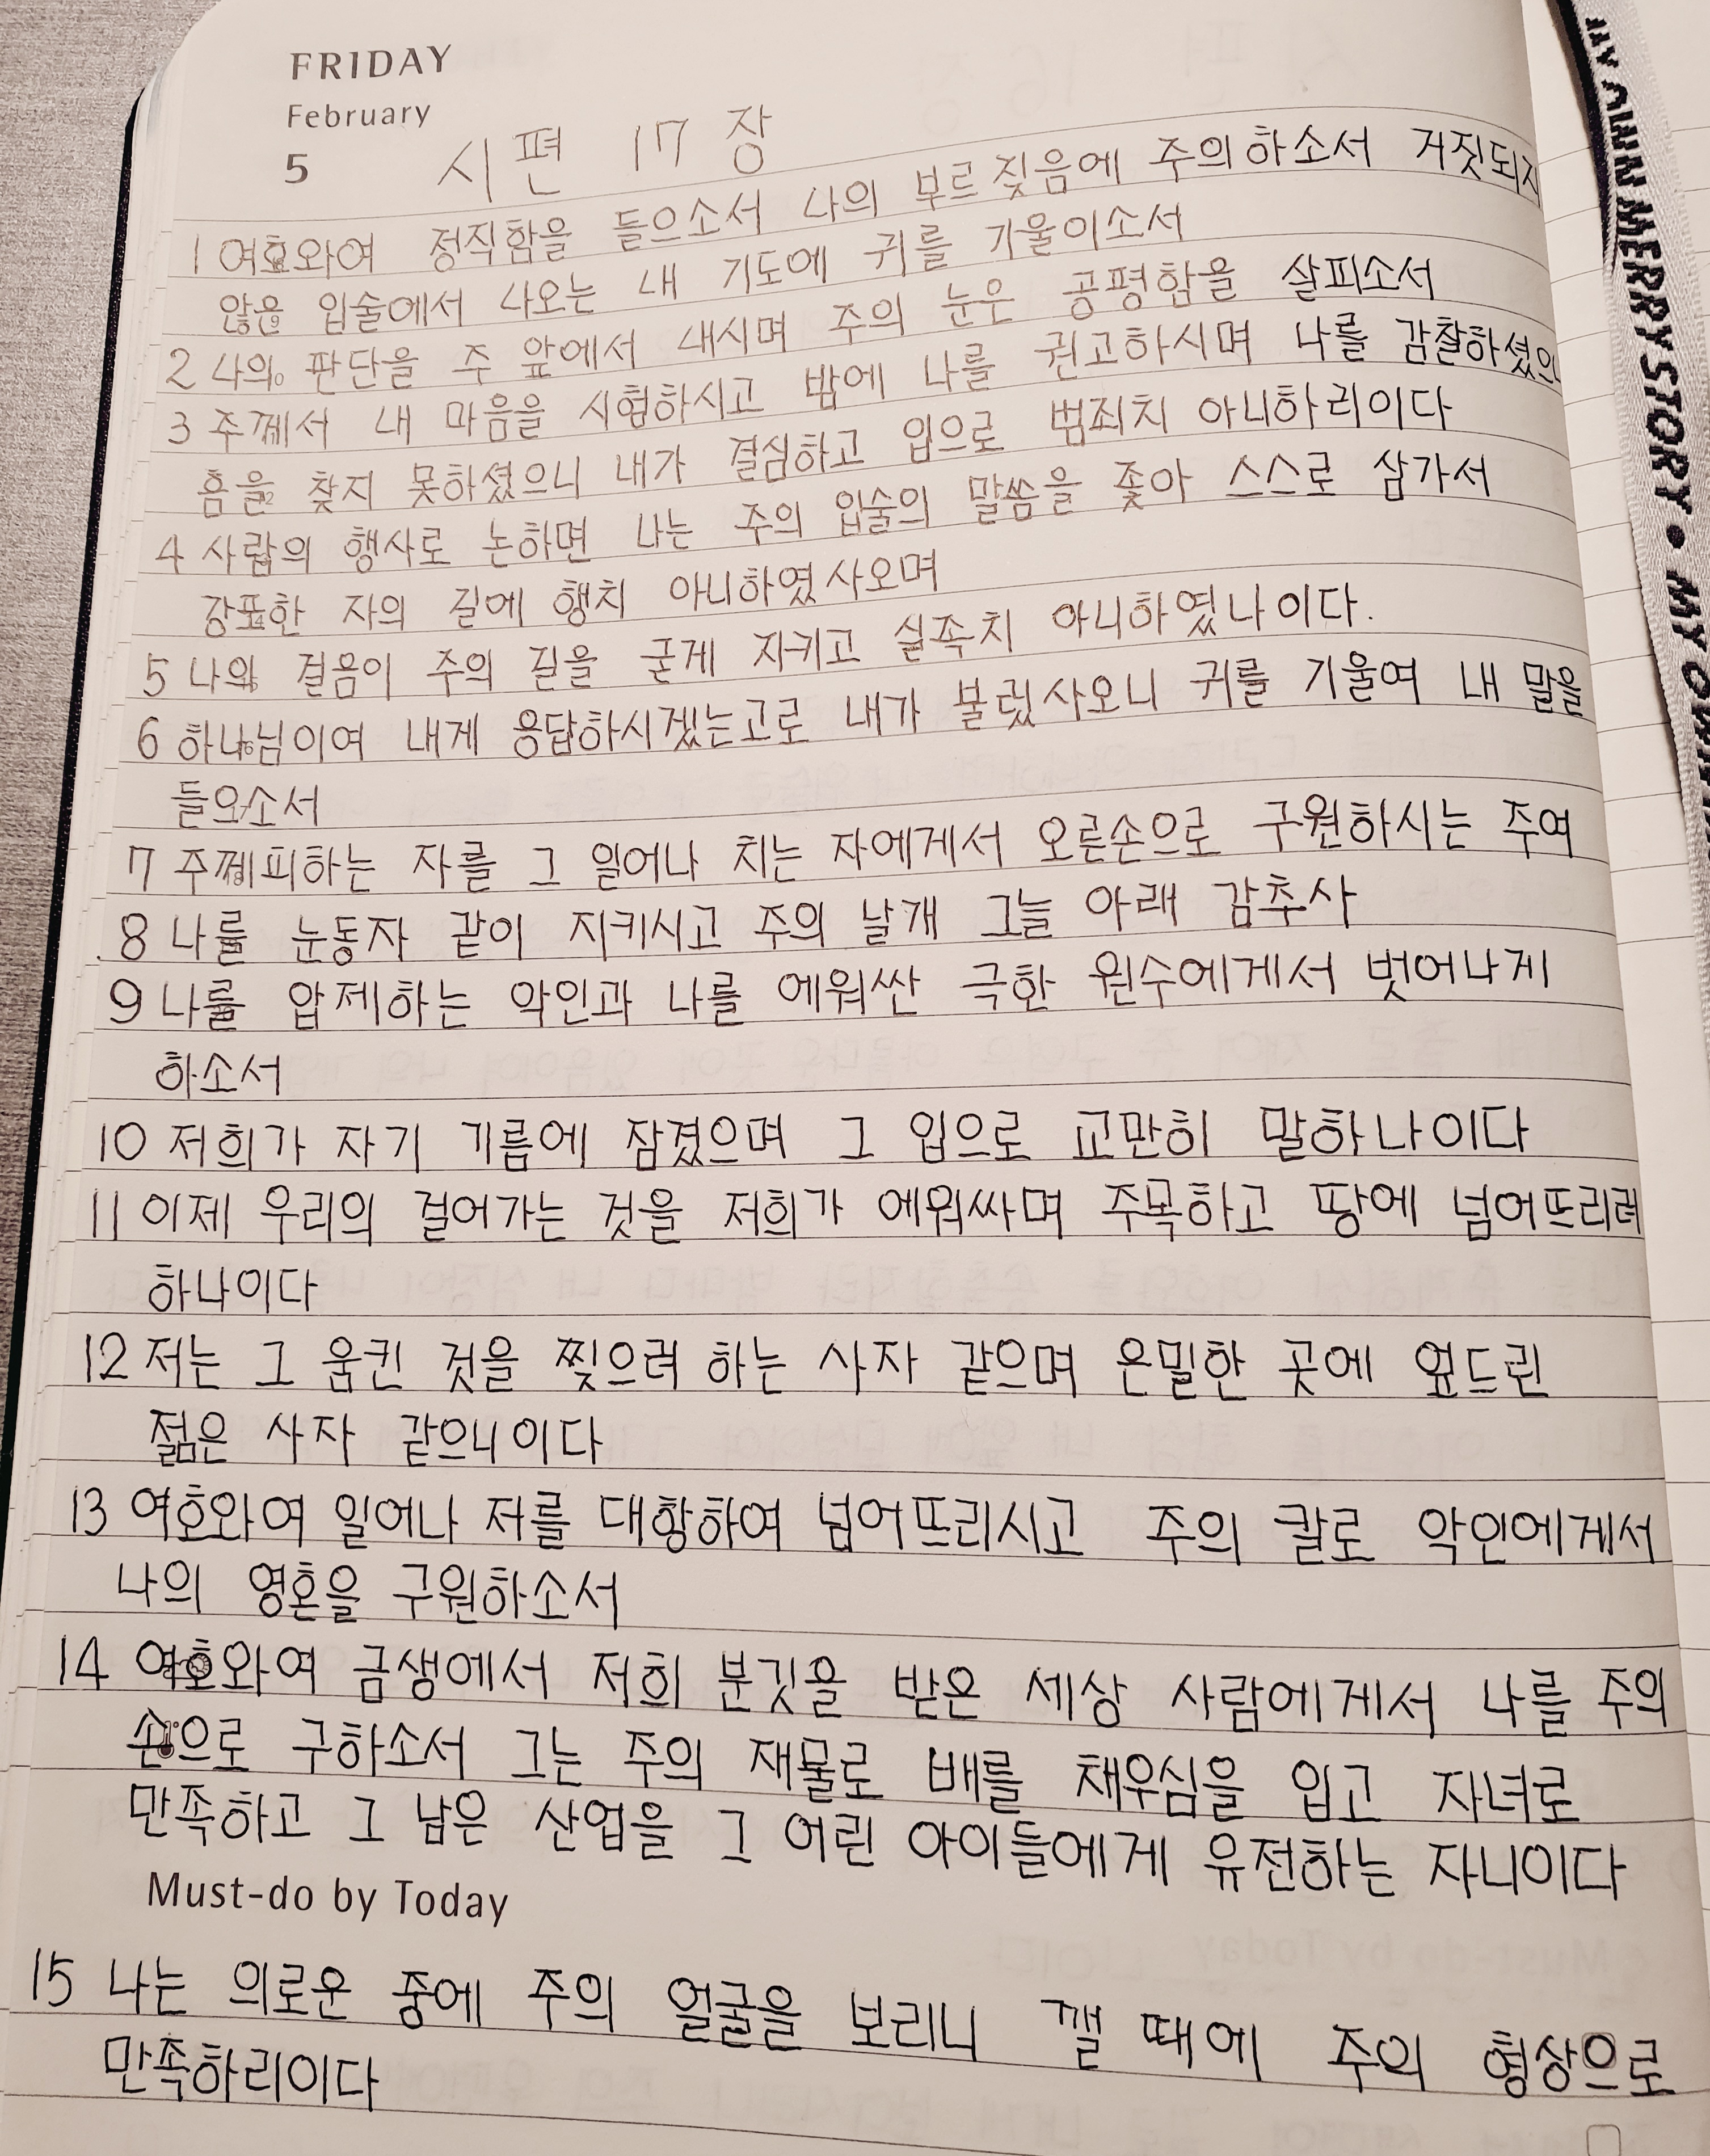 FRIDAY
February
5
시편 17장
1 여호와여 정직함을 들으소서 나의 부르짖음에 주의하소서 거짓되지
않은 입술에서 나오는 내 기도에 귀를 기울이소서
2 나의 판단을 주 앞에서 내시며 주의 눈은 공평함을 살피소서
3 주께서 내 마음을 시험하시고 밤에 나를 권고하시며 나를 감찰하셨으
흠을 찾지 못하셨으니 내가 결심하고 입으로 범죄치 아니하리이다
4 사람의 행사로 논하면 나는 주의 입술의 말씀을 좇아 스스로 삼가서
강포한 자의 길에 행치 아니하였사오며
5 나의 걸음이 주의 길을 굳게 지키고 실족치 아니하였나이다.
6 하나님이여 내게 응답하시겠는고로 내가 불렀사오니 귀를 기울여 내 말을
들으소서
7 주께피하는 자를 그 일어나 치는 자에게서 오른손으로 구원하시는 주여
8 나를 눈동자 같이 지키시고 주의 날개 그늘 아래 감추사
9 나를 압제하는 악인과 나를 에워싼 극한 원수에게서 벗어나게
하소서
10 저희가 자기 기름에 잠겼으며 그 입으로 교만히 말하나이다
11 이제 우리의 걸어가는 것을 저희가 에워싸며 주목하고 땅에 넘어뜨리려
하나이다
12 저는 그 움킨 것을 찢으려 하는 사자 같으며 은밀한 곳에 엎드린
젊은 사자 같으니이다
13 여호와여 일어나 저를 대항하여 넘어뜨리시고 주의 칼로 악인에게서
나의 영혼을 구원하소서
14 여호와여 금생에서 저희 분깃을 받은 세상 사람에게서 나를 주의
손으로 구하소서 그는 주의 재물로 배를 채우심을 입고 자녀로
만족하고 그 남은 산업을 그 어린 아이들에게 유전하는 자니이다
Must-do by Today
15 나는 의로운 중에 주의 얼굴을 보리니 깰 때에 주의 형상으로
만족하리이다
MY OWN MERRY STORY • MY OWN